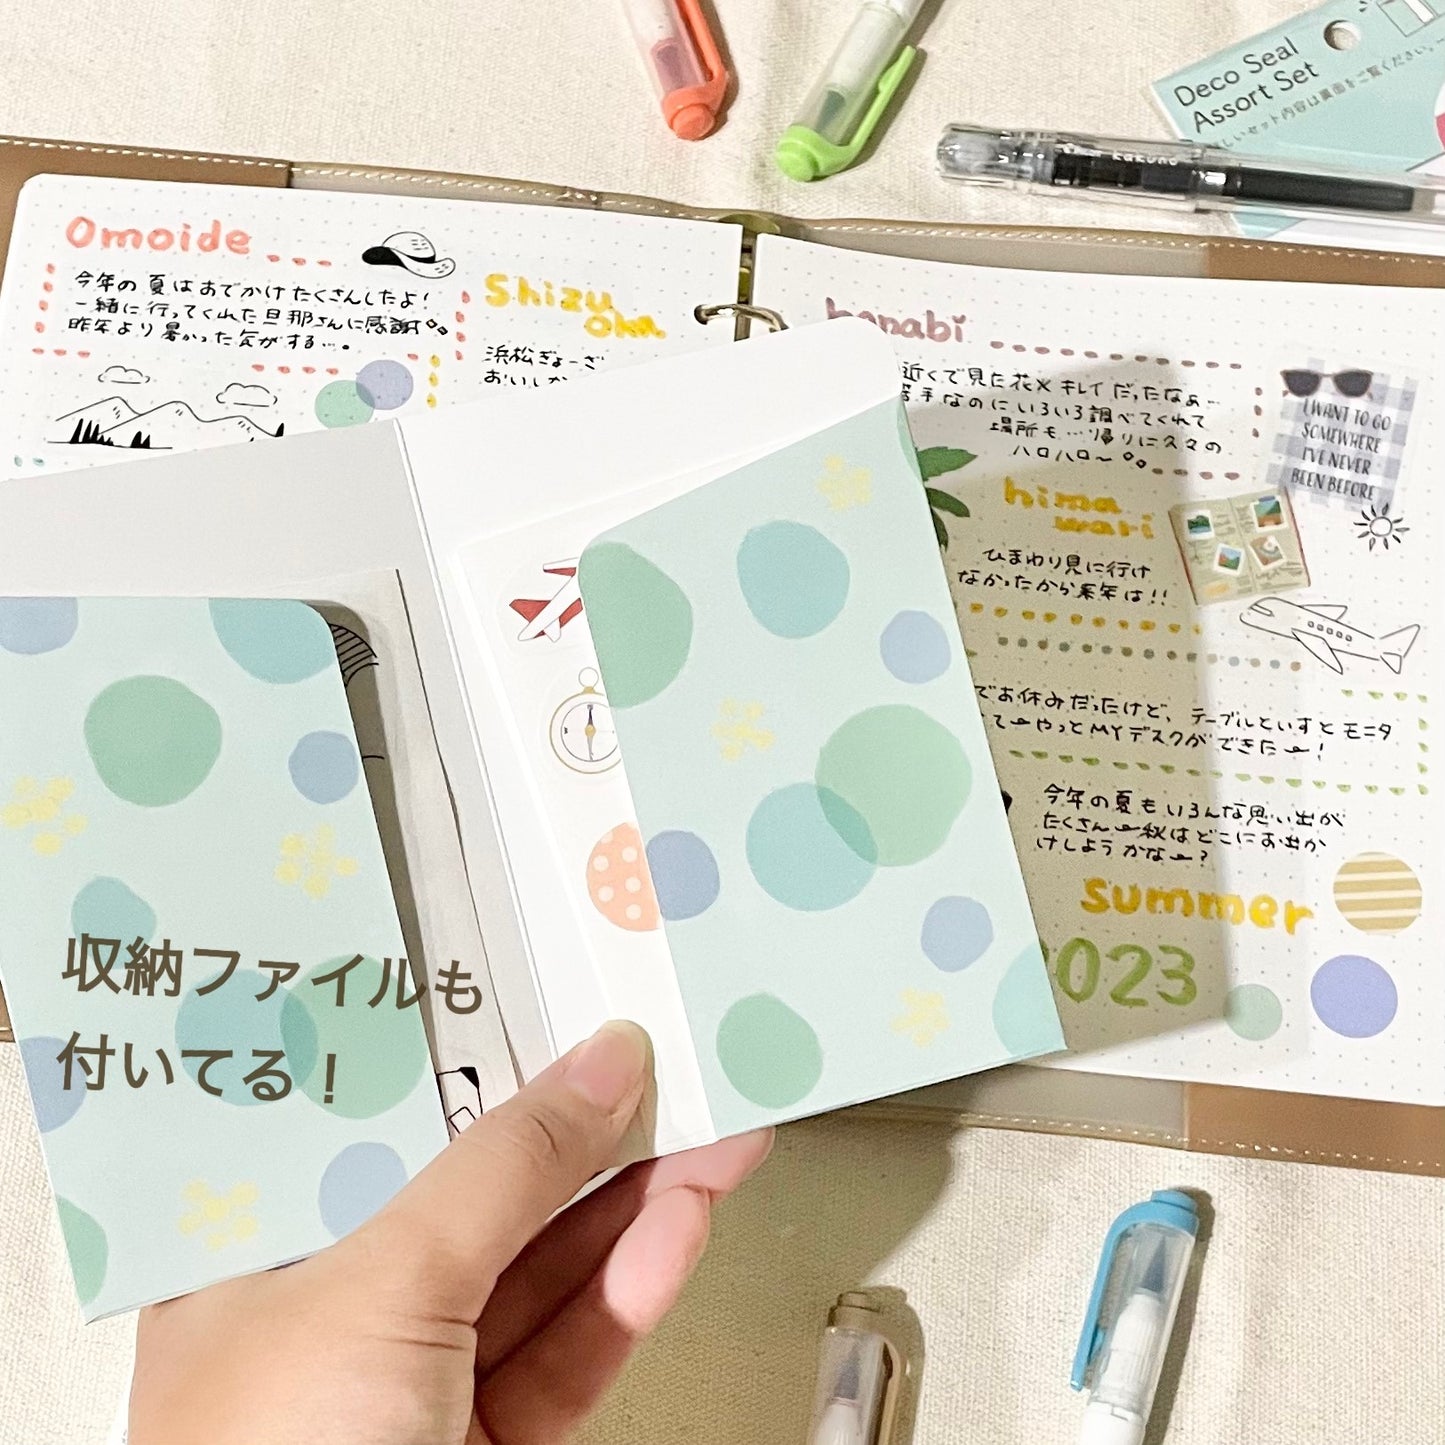 Deco Seal
Assort Set
しいセット内容は裏面をご覧ください。
kakuno
Omoide
今年の夏はおでかけたくさんしたよ!
一緒に行ってくれた旦那さんに感謝
昨年より暑かった気がする…。
Shizu
oka
浜松ぎょーざ
おいしか
hanabi
近くで見た花火キレイだったなぁ…
苦手なのにいろいろ調べてくれて
場所も…帰りに久々の
ハロハロ〜
I WANT TO GO
SOMEWHERE
I'VE NEVER
BEEN BEFORE
hima
wari
ひまわり見に行け
なかったから来年は!!
でお休みだったけど、テーブルといすとモニタ
て〜やっとMYデスクができた〜!
今年の夏もいろんな思い出が
たくさん〜秋はどこにお出か
けしようかな〜?
summer
2023
収納ファイルも
付いてる!